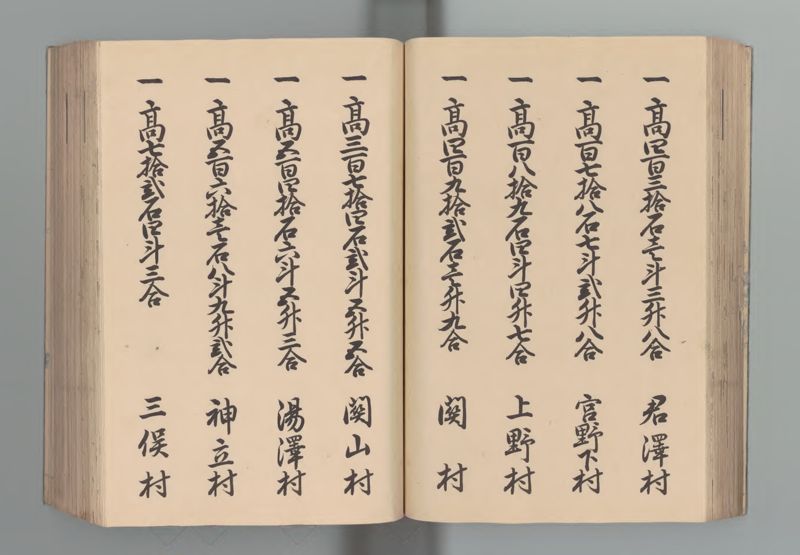 一 高四百三拾石壱斗三升八合 君澤村
一 高百七拾八石七斗弐升八合 宮野下村
一 高百八拾九石四斗四升七合 上野村
一 高四百九拾弐石壱升九合 関村
一 高三百七拾四石弐斗五升五合 関山村
一 高五百四拾石六斗五升三合 湯澤村
一 高五百六拾壱石八斗九升弐合 神立村
一 高七拾弐石四斗三合 三俣村